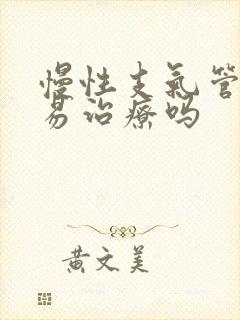 慢性支氣管
易治療吗
黄文美